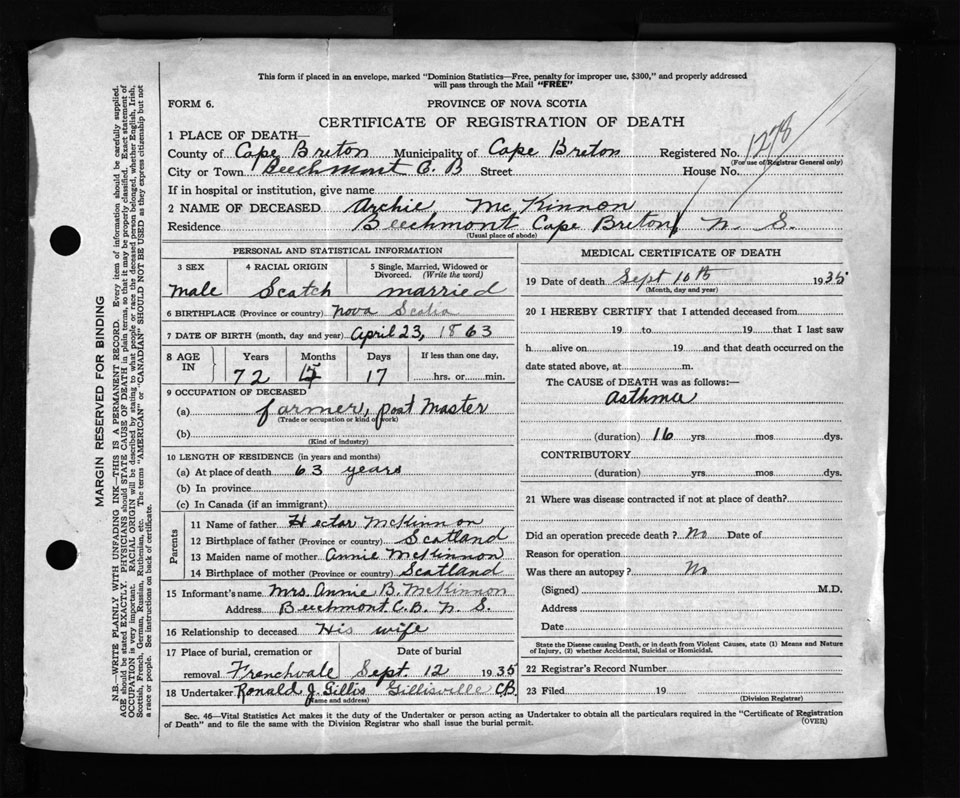 This form if placed in an envelope, marked "Dominion Statistics—Free, penalty for improper use, $300," and properly addressed
will pass through the Mail "FREE"
FORM 6.
PROVINCE OF NOVA SCOTIA
CERTIFICATE OF REGISTRATION OF DEATH
1 PLACE OF DEATH—
County of Cape Breton Municipality of Cape Breton Registered No. 1278
(For use of Registrar General only)
City or Town Beechmont C. B Street House No.
If in hospital or institution, give name
2 NAME OF DECEASED Archie Mc Kinnon
Residence Beechmont Cape Breton, N. S.
(Usual place of abode)
PERSONAL AND STATISTICAL INFORMATION
3 SEX 4 RACIAL ORIGIN 5 Single, Married, Widowed or
Divorced. (Write the word)
male Scotch married
6 BIRTHPLACE (Province or country) Nova Scotia
7 DATE OF BIRTH (month, day and year) April 23, 1863
8 AGE IN Years Months Days If less than one day,
72 17 hrs. or min.
9 OCCUPATION OF DECEASED
(a) farmer, post Master
(Trade or occupation or kind of work)
(b)
(Kind of industry)
10 LENGTH OF RESIDENCE (in years and months)
(a) At place of death 63 years
(b) In province
(c) In Canada (if an immigrant)
Parents
11 Name of father Hector McKinnon
12 Birthplace of father (Province or country) Scotland
13 Maiden name of mother Annie McKinnon
14 Birthplace of mother (Province or country) Scotland
15 Informant's name Mrs. Annie B. McKinnon
Address Beechmont C.B. N. S.
16 Relationship to deceased His wife
17 Place of burial, cremation or Date of burial
removal Frenchvale Sept. 12 1935
18 Undertaker Ronald J. Gillis Gillisville C.B.
(Name and address)
MEDICAL CERTIFICATE OF DEATH
19 Date of death Sept 10th 1935
(Month, day and year)
20 I HEREBY CERTIFY that I attended deceased from
19 to 19 that I last saw
h alive on 19 and that death occurred on the
date stated above, at m.
The CAUSE of DEATH was as follows:—
Asthma
(duration) 16 yrs. mos. dys.
CONTRIBUTORY
(duration) yrs. mos. dys.
21 Where was disease contracted if not at place of death?
Did an operation precede death? No Date of
Reason for operation
Was there an autopsy? No
(Signed) M.D.
Address
Date
State the Disease causing Death, or in death from Violent Causes, state (1) Means and Nature
of Injury, (2) whether Accidental, Suicidal or Homicidal.
22 Registrar's Record Number
23 Filed 19
(Division Registrar)
Sec. 46—Vital Statistics Act makes it the duty of the Undertaker or person acting as Undertaker to obtain all the particulars required in the "Certificate of Registration
of Death" and to file the same with the Division Registrar who shall issue the burial permit.
(OVER)
MARGIN RESERVED FOR BINDING
N.B.—WRITE PLAINLY WITH UNFADING INK—THIS IS A PERMANENT RECORD. Every item of information should be carefully supplied.
AGE should be stated EXACTLY. PHYSICIANS should STATE CAUSE OF DEATH in plain terms, so that it may be properly classified. Exact statement of
OCCUPATION is very important. RACIAL ORIGIN will be described by stating to what people or race the deceased person belonged, whether English, Irish,
Scottish, French, German, Russian, Ruthenian, etc. The terms "AMERICAN" or "CANADIAN" SHOULD NOT BE USED as they express citizenship but not
a race or people. See instructions on back of certificate.